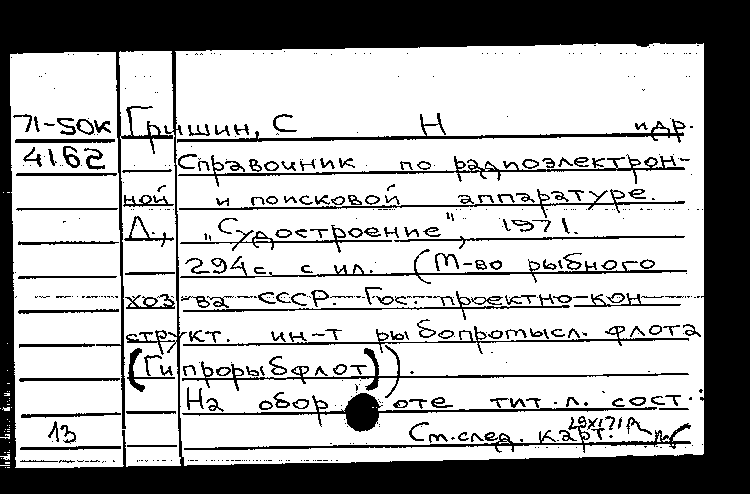 71-50к Гришин, С Н и др.
4162 Справочник по радиоэлектрон-
ной и поисковой аппаратуре.
Л., „Судостроение", 1971.
294 с. с ил. (М-во рыбного
хоз-ва СССР. Гос. проектно-кон
структ. ин-т рыбопромысл. флота
(Гипрорыбфлот)).
На обороте тит. л. сост.:
13 См. след. карт.